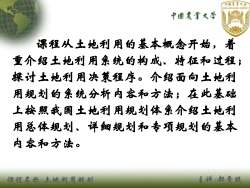 中国农业大学
课程从土地利用的基本概念开始，着
重介绍土地利用系统的构成、特征和过程；
探讨土地利用决策程序。介绍面向土地利
用规划的系统分析内容和方法；在此基础
上按照我国土地利用规划体系介绍土地利
用总体规划、详细规划和专项规划的基本
内容和方法。
课程名称 土地利用规划